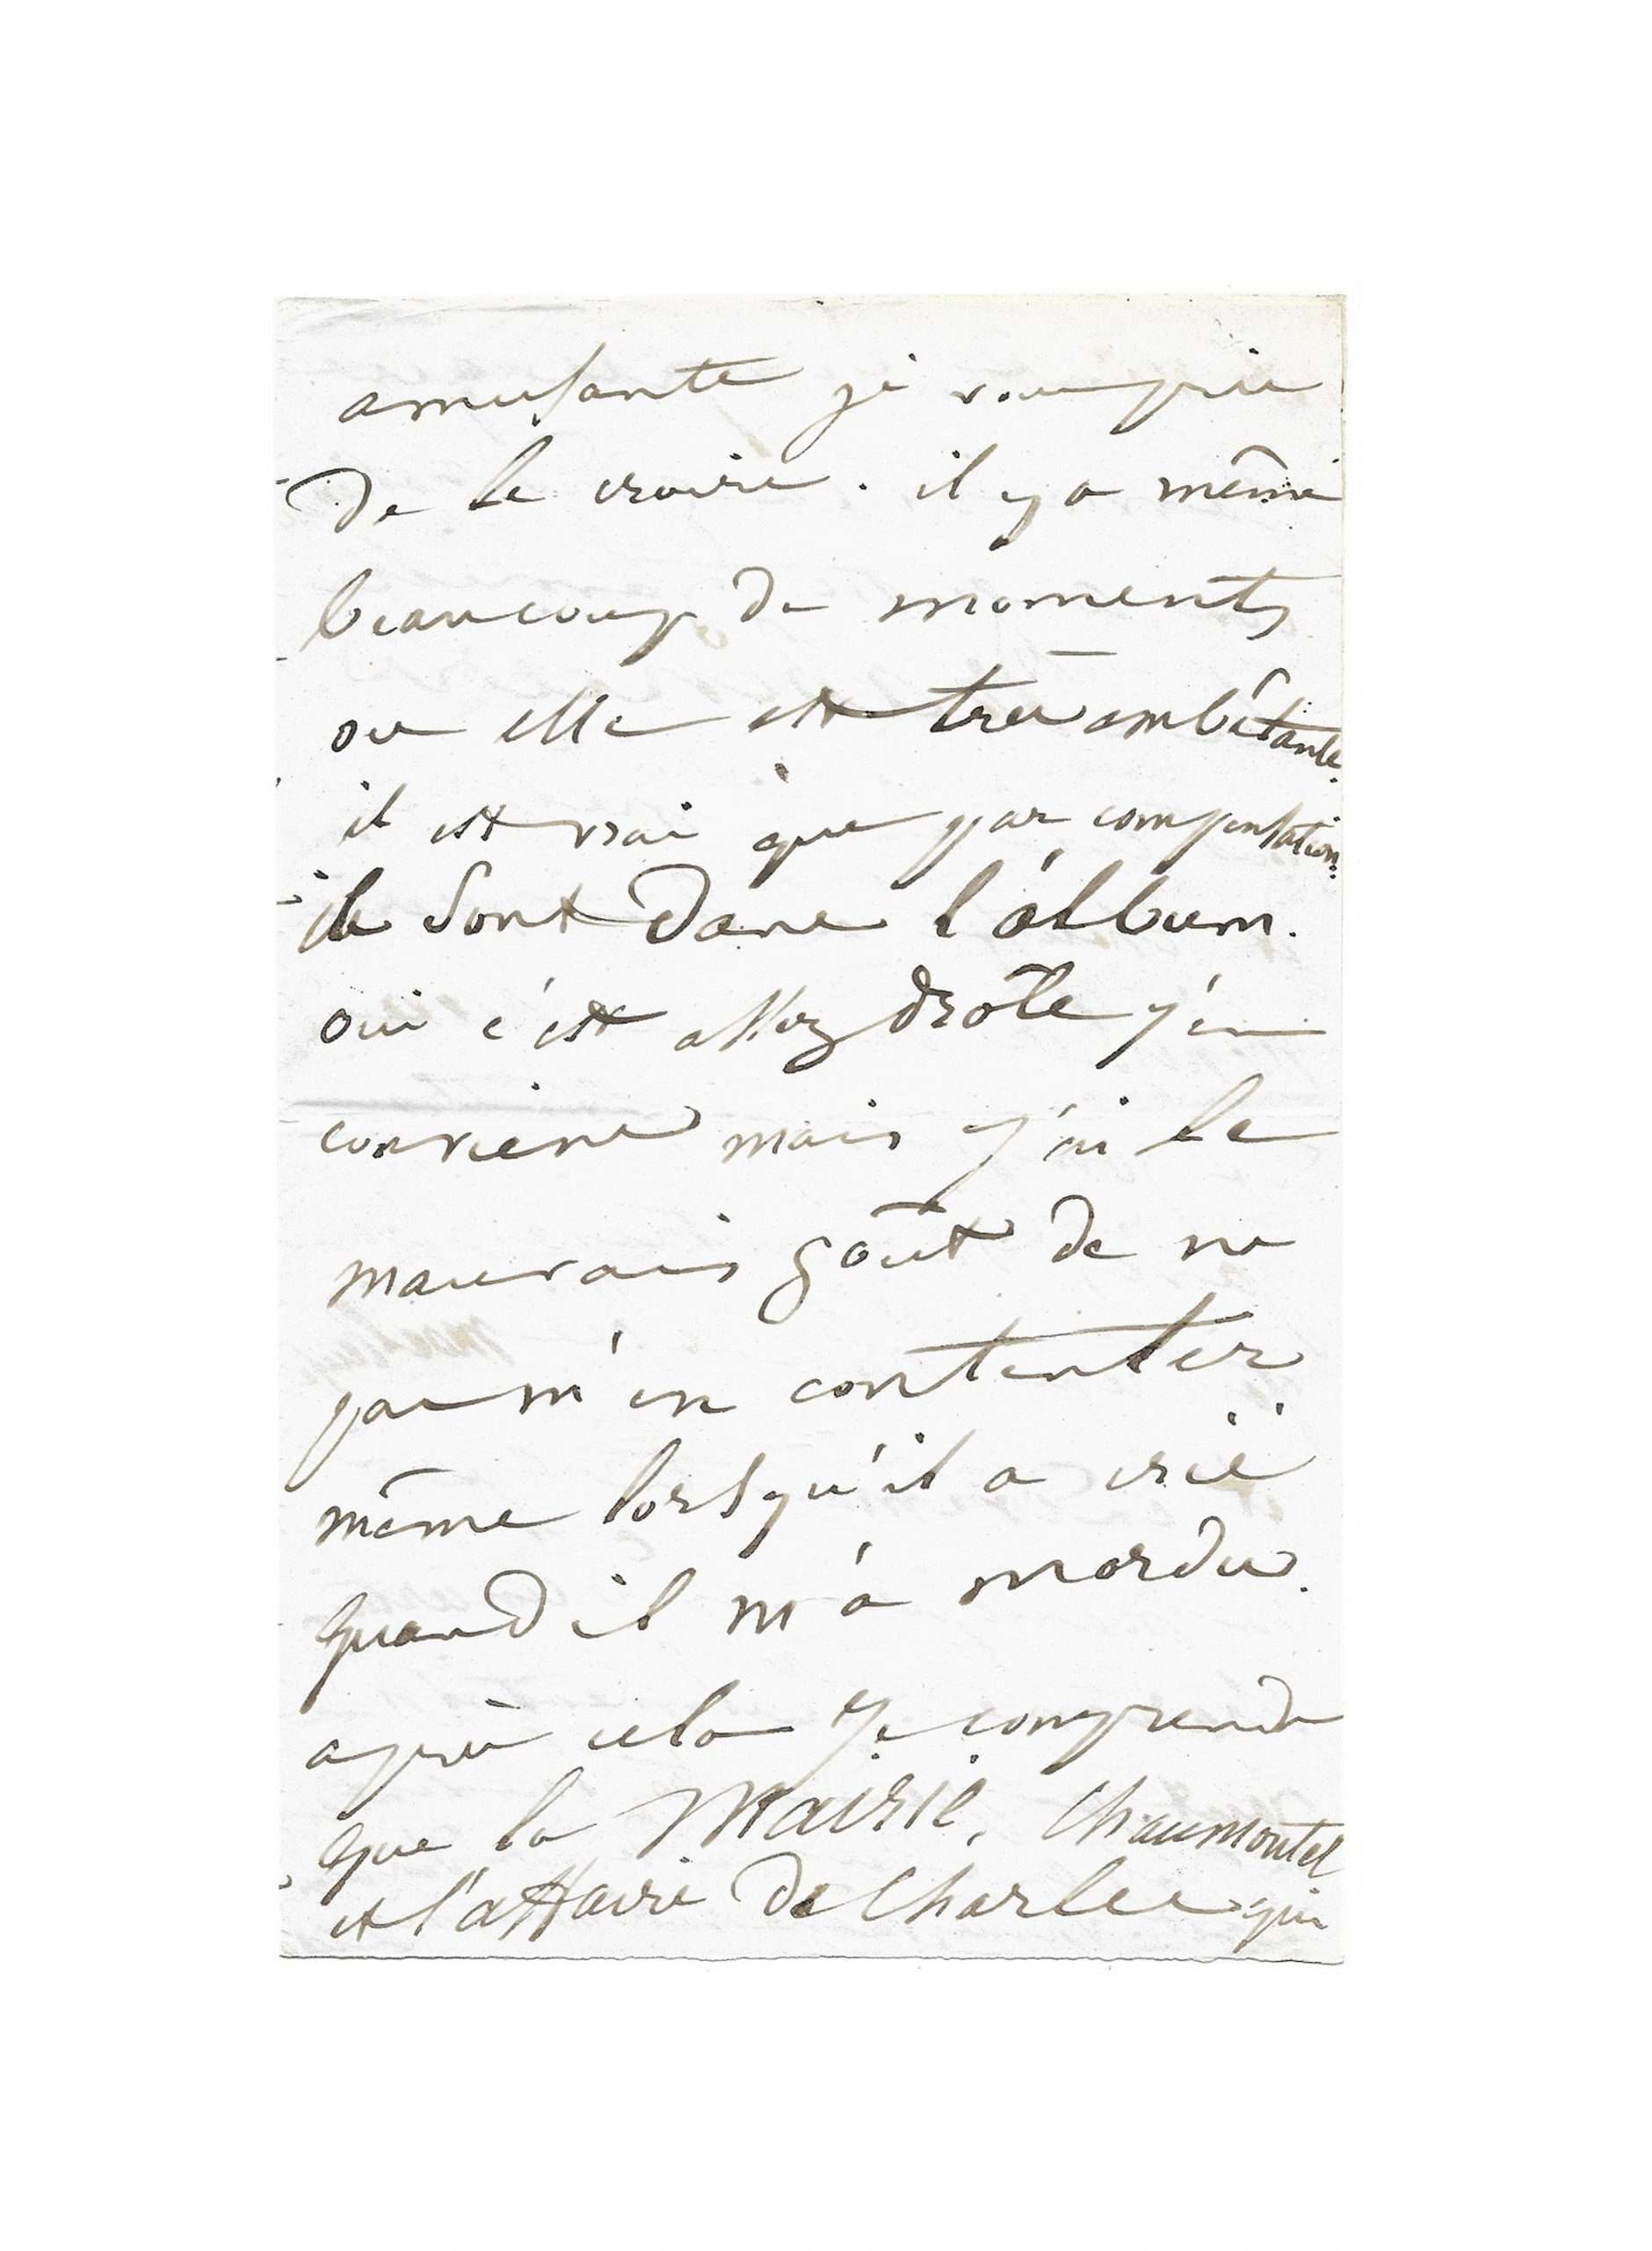 amusante je vous prie
de le croire. il y a même
beaucoup de moments
ou elle est très embêtante.
il est vrai que par compensation
ils sont dans l'album.
oui c'est assez drôle j'en
conviens mais j'ai le
mauvais goût de ne
pas m'en contenter
même lorsqu'il a crié
quand il m'a mordu.
après cela je comprends
que la Mairie, Chaumontel
et l'affaire de Charles qui